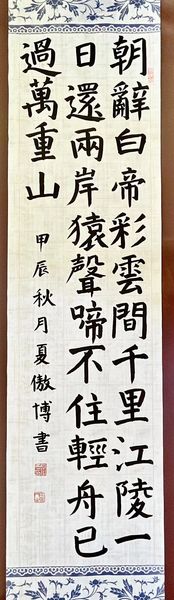 朝辭白帝彩雲間千里江陵一
日還兩岸猿聲啼不住輕舟已
過萬重山
甲辰秋月夏傲博書